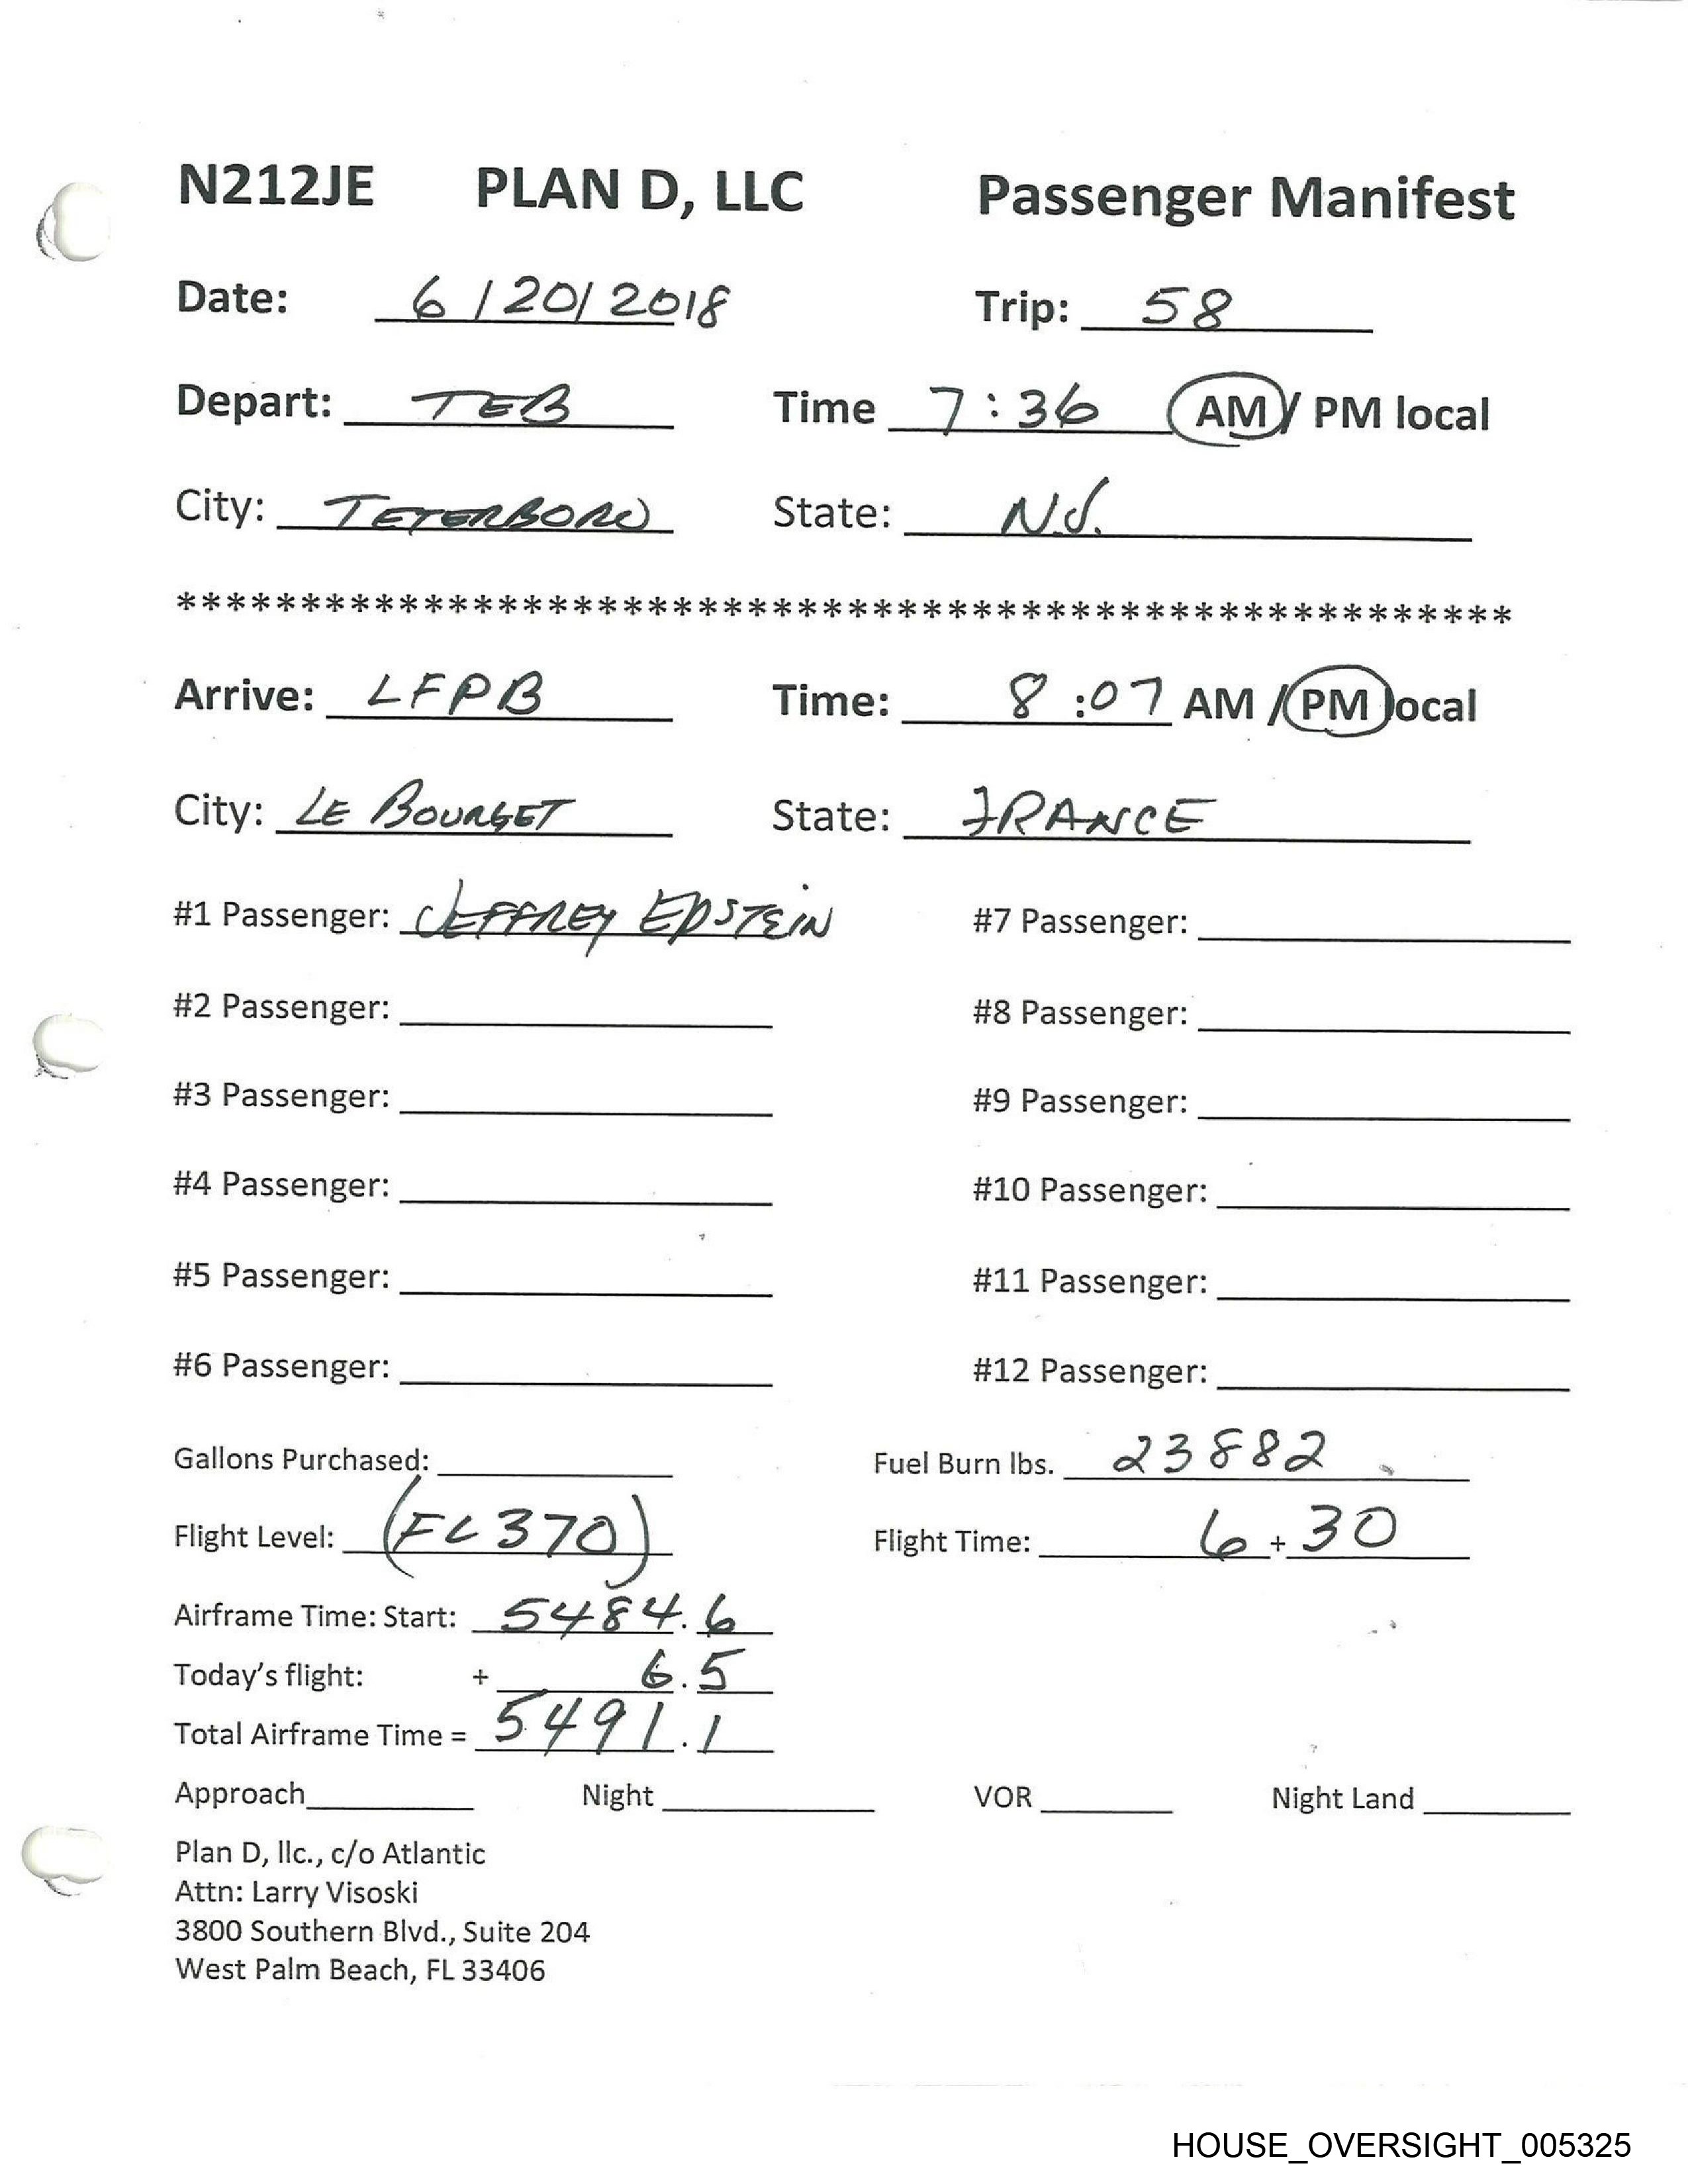 N212JE PLAN D, LLC Passenger Manifest
Date: 6/20/2018 Trip: 58
Depart: TEB Time 7:36 AM / PM local
City: TETERBORO State: N.J.
******************************************************
Arrive: LFPB Time: 8:07 AM / PM local
City: LE BOURGET State: FRANCE
#1 Passenger: JEFFREY EPSTEIN #7 Passenger:
#2 Passenger: #8 Passenger:
#3 Passenger: #9 Passenger:
#4 Passenger: #10 Passenger:
#5 Passenger: #11 Passenger:
#6 Passenger: #12 Passenger:
Gallons Purchased: Fuel Burn lbs. 23882
Flight Level: (FL370) Flight Time: 6 + 30
Airframe Time: Start: 5484.6
Today's flight: + 6.5
Total Airframe Time = 5491.1
Approach Night VOR Night Land
Plan D, llc., c/o Atlantic
Attn: Larry Visoski
3800 Southern Blvd., Suite 204
West Palm Beach, FL 33406
HOUSE_OVERSIGHT_005325